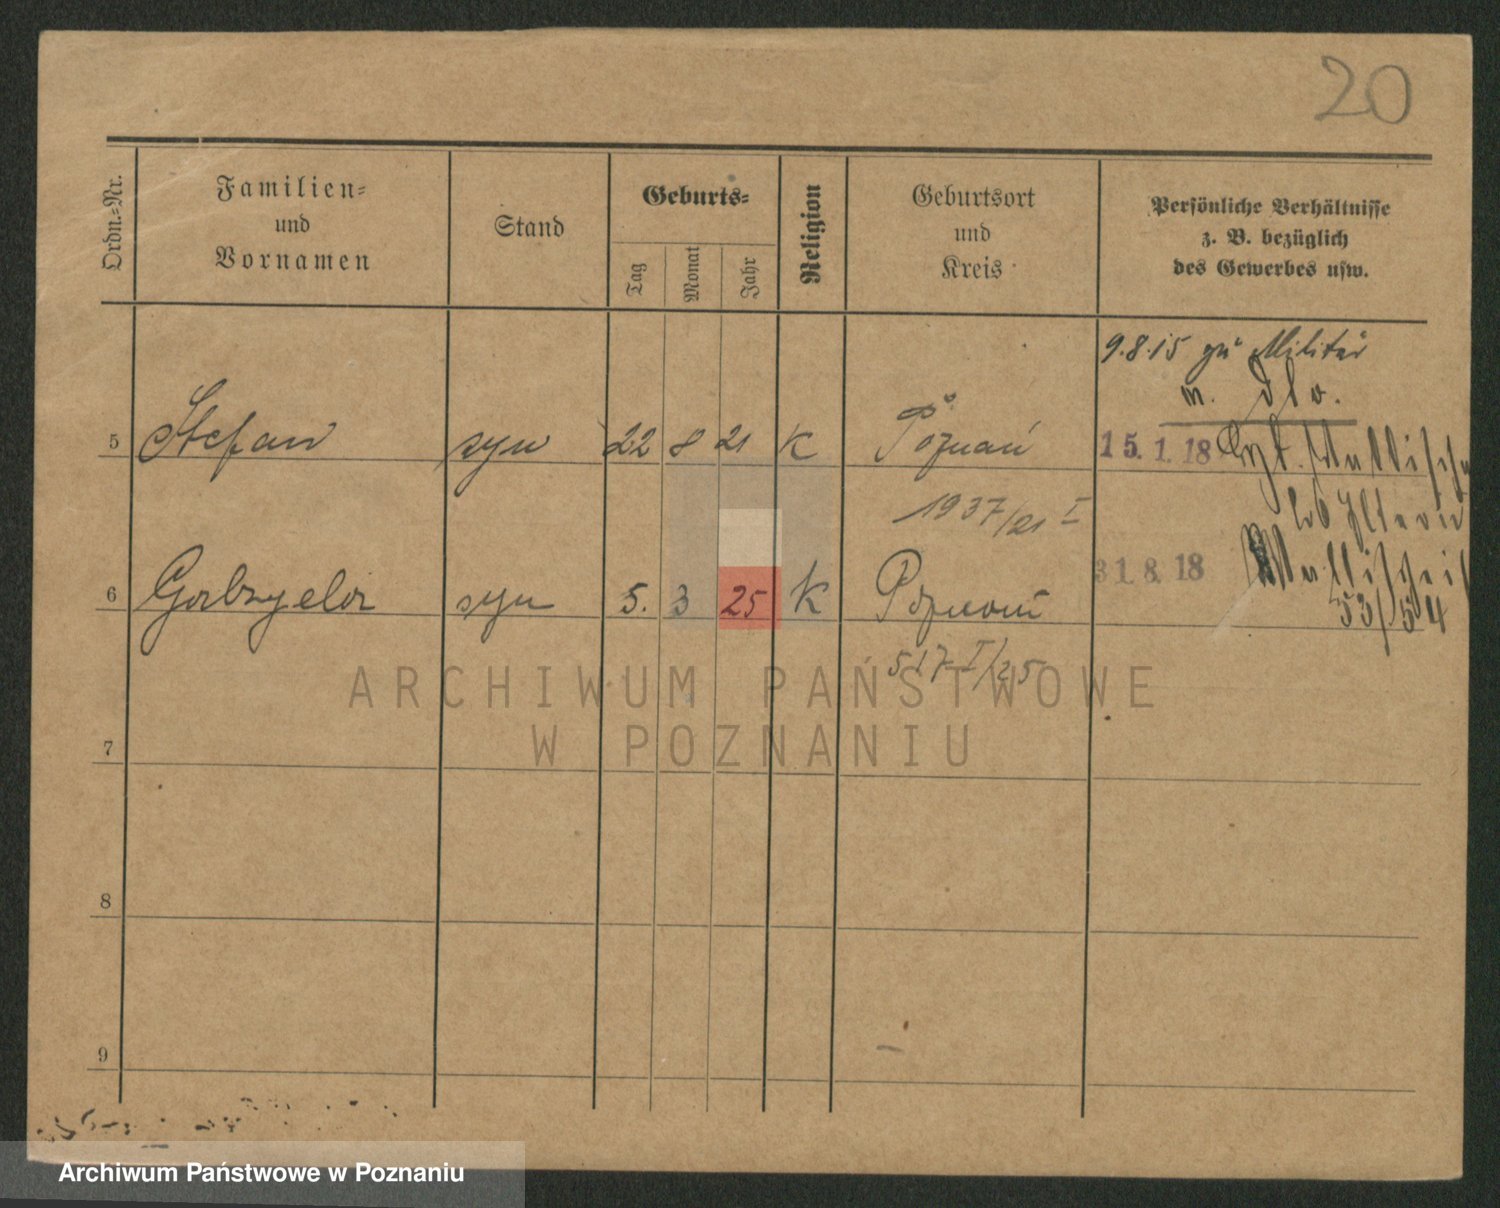 20
Ordn.=Nr.
Familien=
und
Vornamen
Stand
Geburts=
Tag
Monat
Jahr
Religion
Geburtsort
und
Kreis
Persönliche Verhältnisse
z. B. bezüglich
des Gewerbes usw.
9.8.15 zu Militär
5 Stefan syn 22 8 21 K Poznań
15. 1. 18
1937/21 I
6 Gabryela syn 5. 3 25 K Poznań
31. 8. 18
53/54
517 I/25
ARCHIWUM PAŃSTWOWE
W POZNANIU
7
8
9
Archiwum Państwowe w Poznaniu